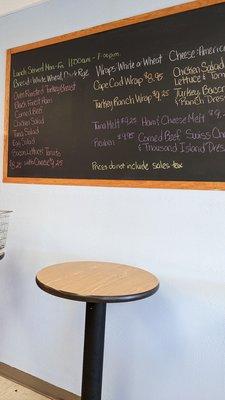 Lunch Served Mon-Fri 11:00am - 1:00pm
Bread: White, Wheat, Rye
Oven Roasted Turkey Breast
Black Forest Ham
Corned Beef
Chicken Salad
Tuna Salad
Egg Salad
Bacon Lettuce Tomato
$8.25 with Cheese $9.25
Wraps: White or Wheat
Cape Cod Wrap $8.95
Turkey Ranch Wrap $9.25
Tuna Melt $9.25
Reuben $9.95
Prices do not include sales tax
Cheese: America
Chicken Salad
Lettuce & Tom
Turkey, Bacon
& Ranch Dres
Ham & Cheese Melt
Corned Beef Swiss Ch
& Thousand Island Dres